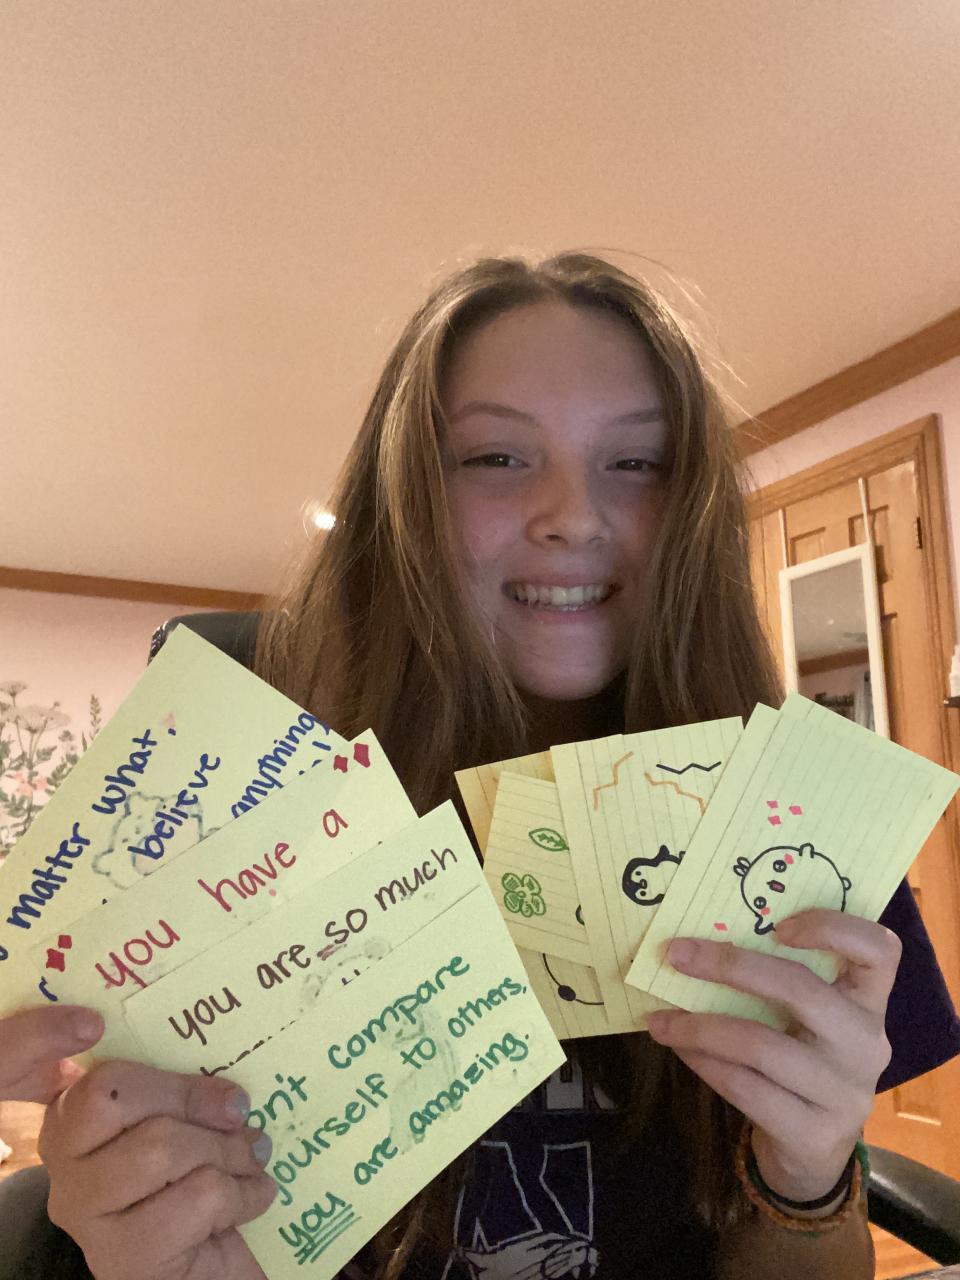 matter what,
believe
anything
you have a
you are so much
don't compare
yourself to others,
you are amazing.